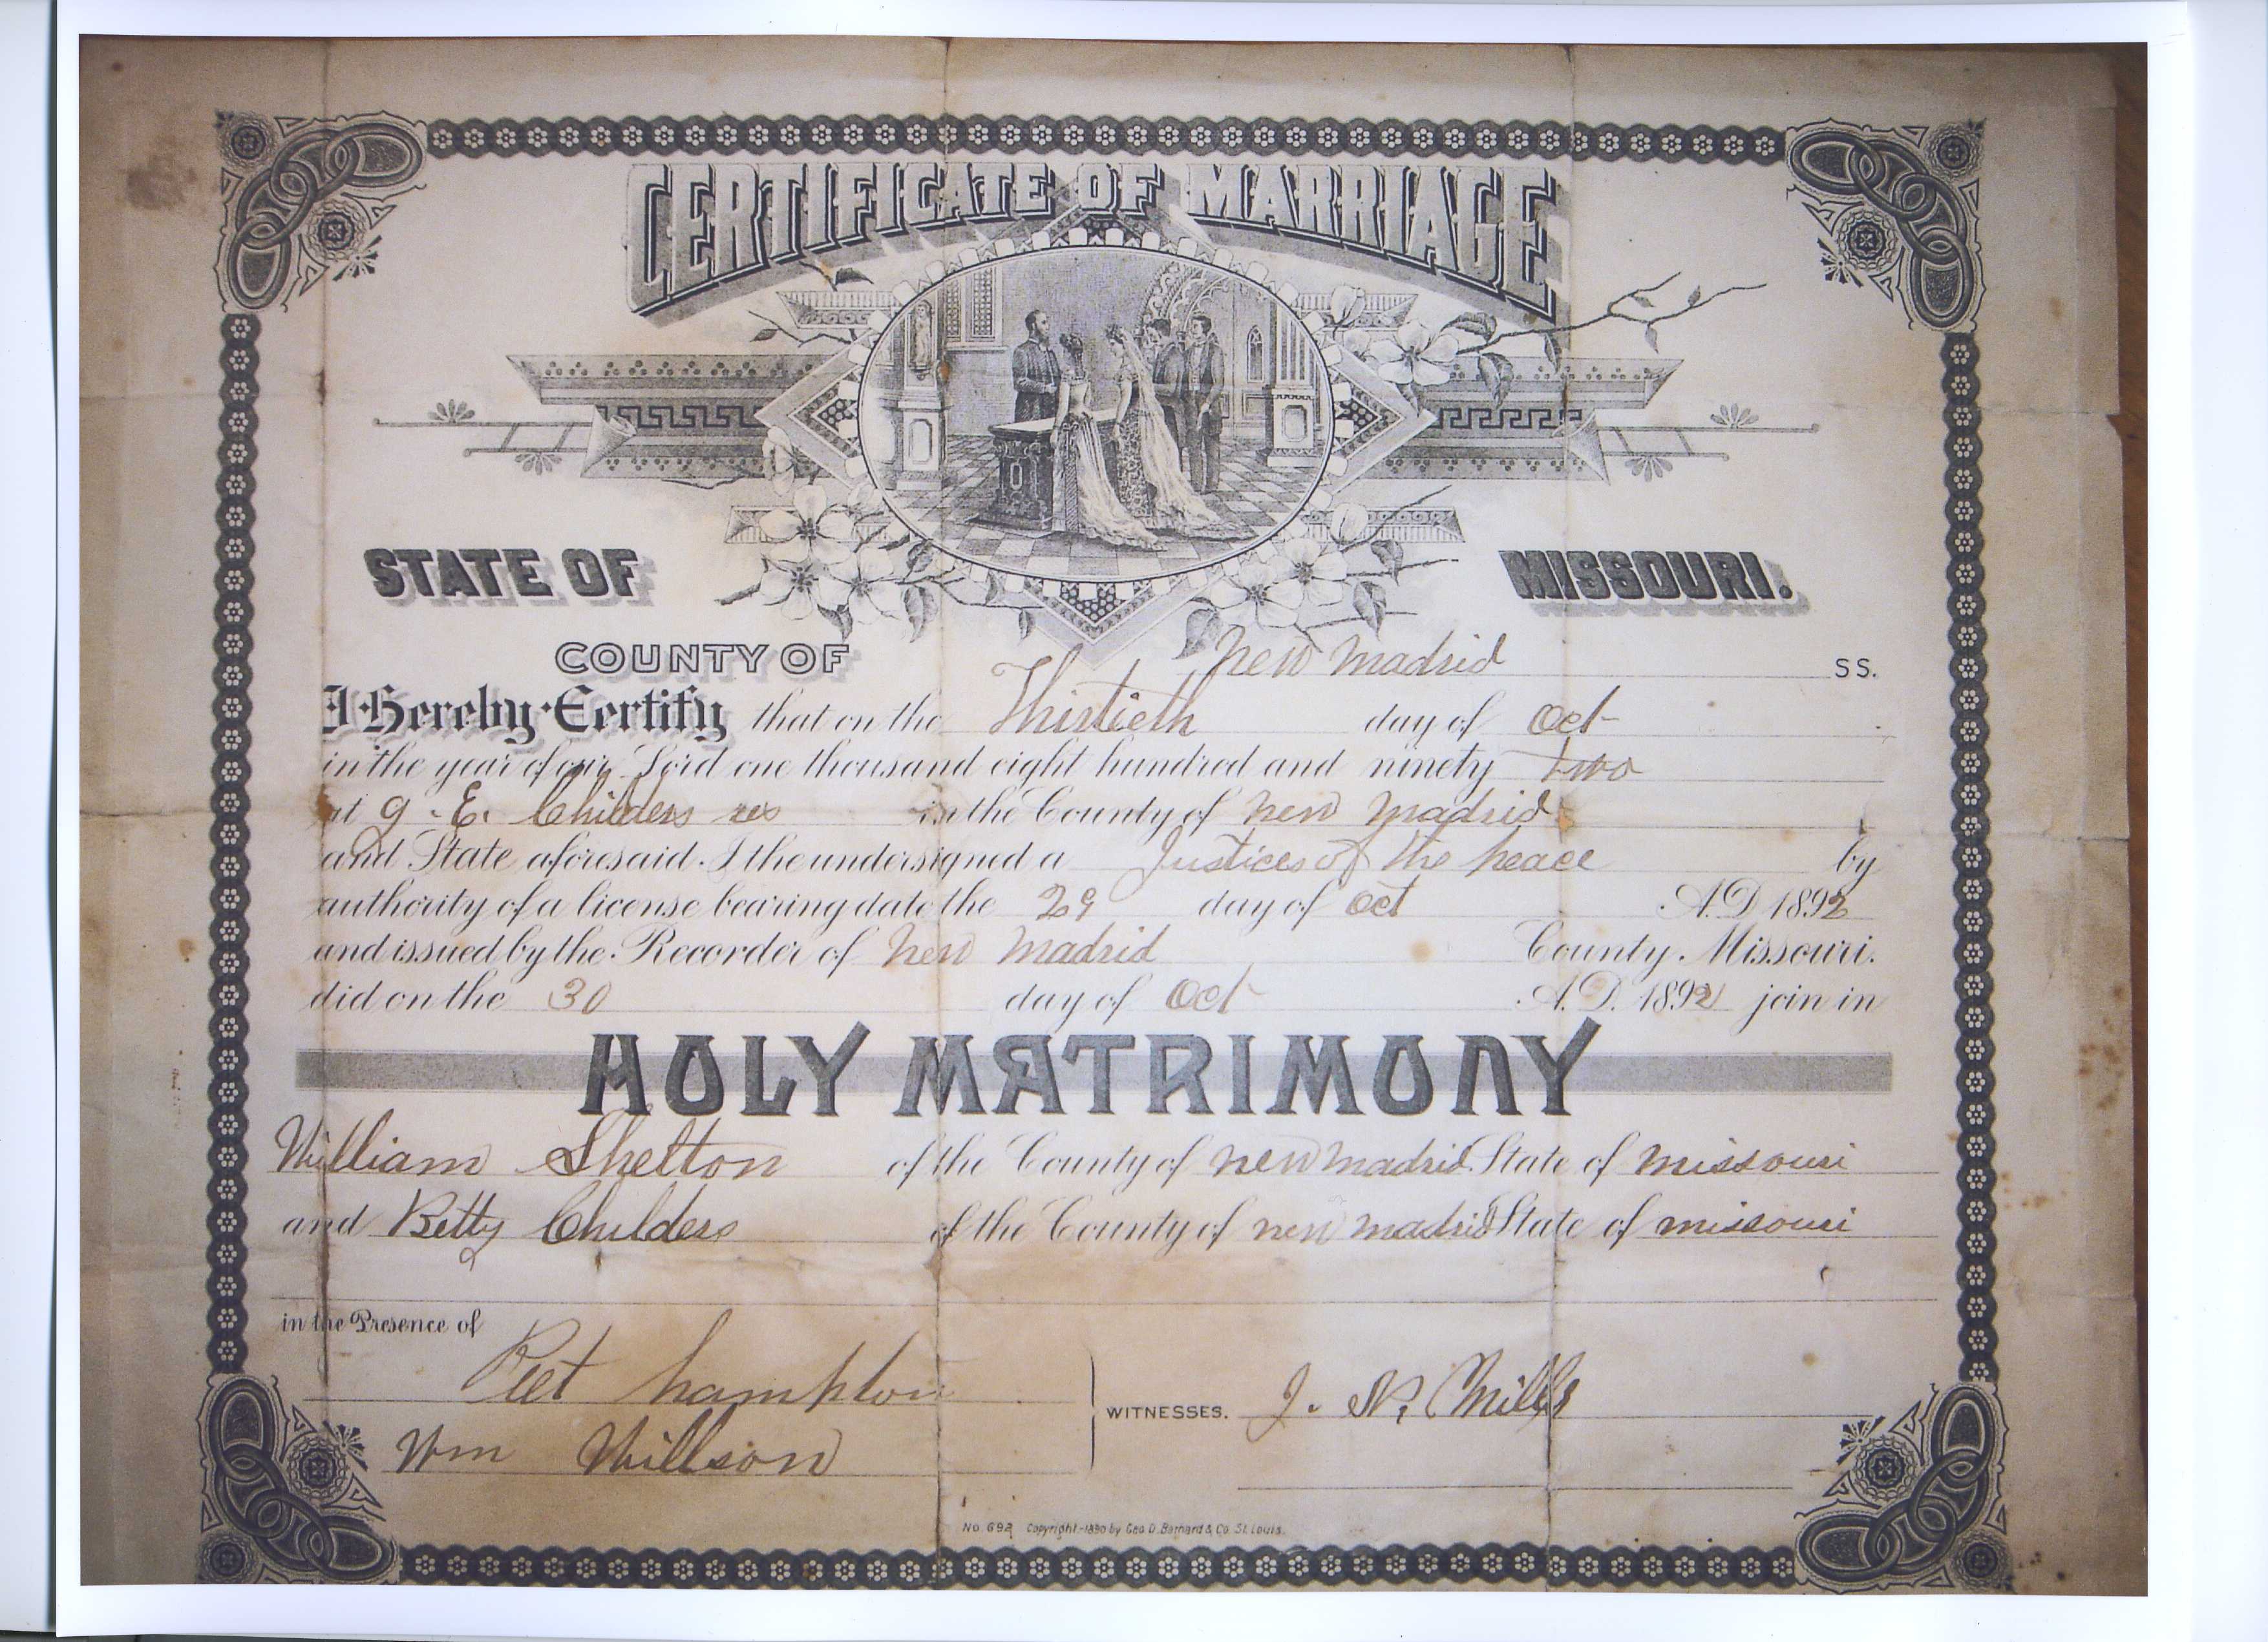 CERTIFICATE OF MARRIAGE
STATE OF MISSOURI.
COUNTY OF New Madrid SS.
I Hereby Certify that on the Thirtieth day of Oct
in the year of our Lord one thousand eight hundred and ninety two
at G. E. Childers res in the County of New Madrid
and State aforesaid. I the undersigned a Justices of the peace by
authority of a license bearing date the 29 day of Oct A.D. 1892
and issued by the Recorder of New Madrid County, Missouri.
did on the 30 day of Oct A.D. 1892 join in
HOLY MATRIMONY
William Shelton of the County of New Madrid State of Missouri
and Betty Childers of the County of New Madrid State of Missouri
in the Presence of
Peet Hampton
WITNESSES. J. N. Mills
Wm Willson
No. 692 Copyright-1890 by Geo. D. Barnard & Co. St. Louis.